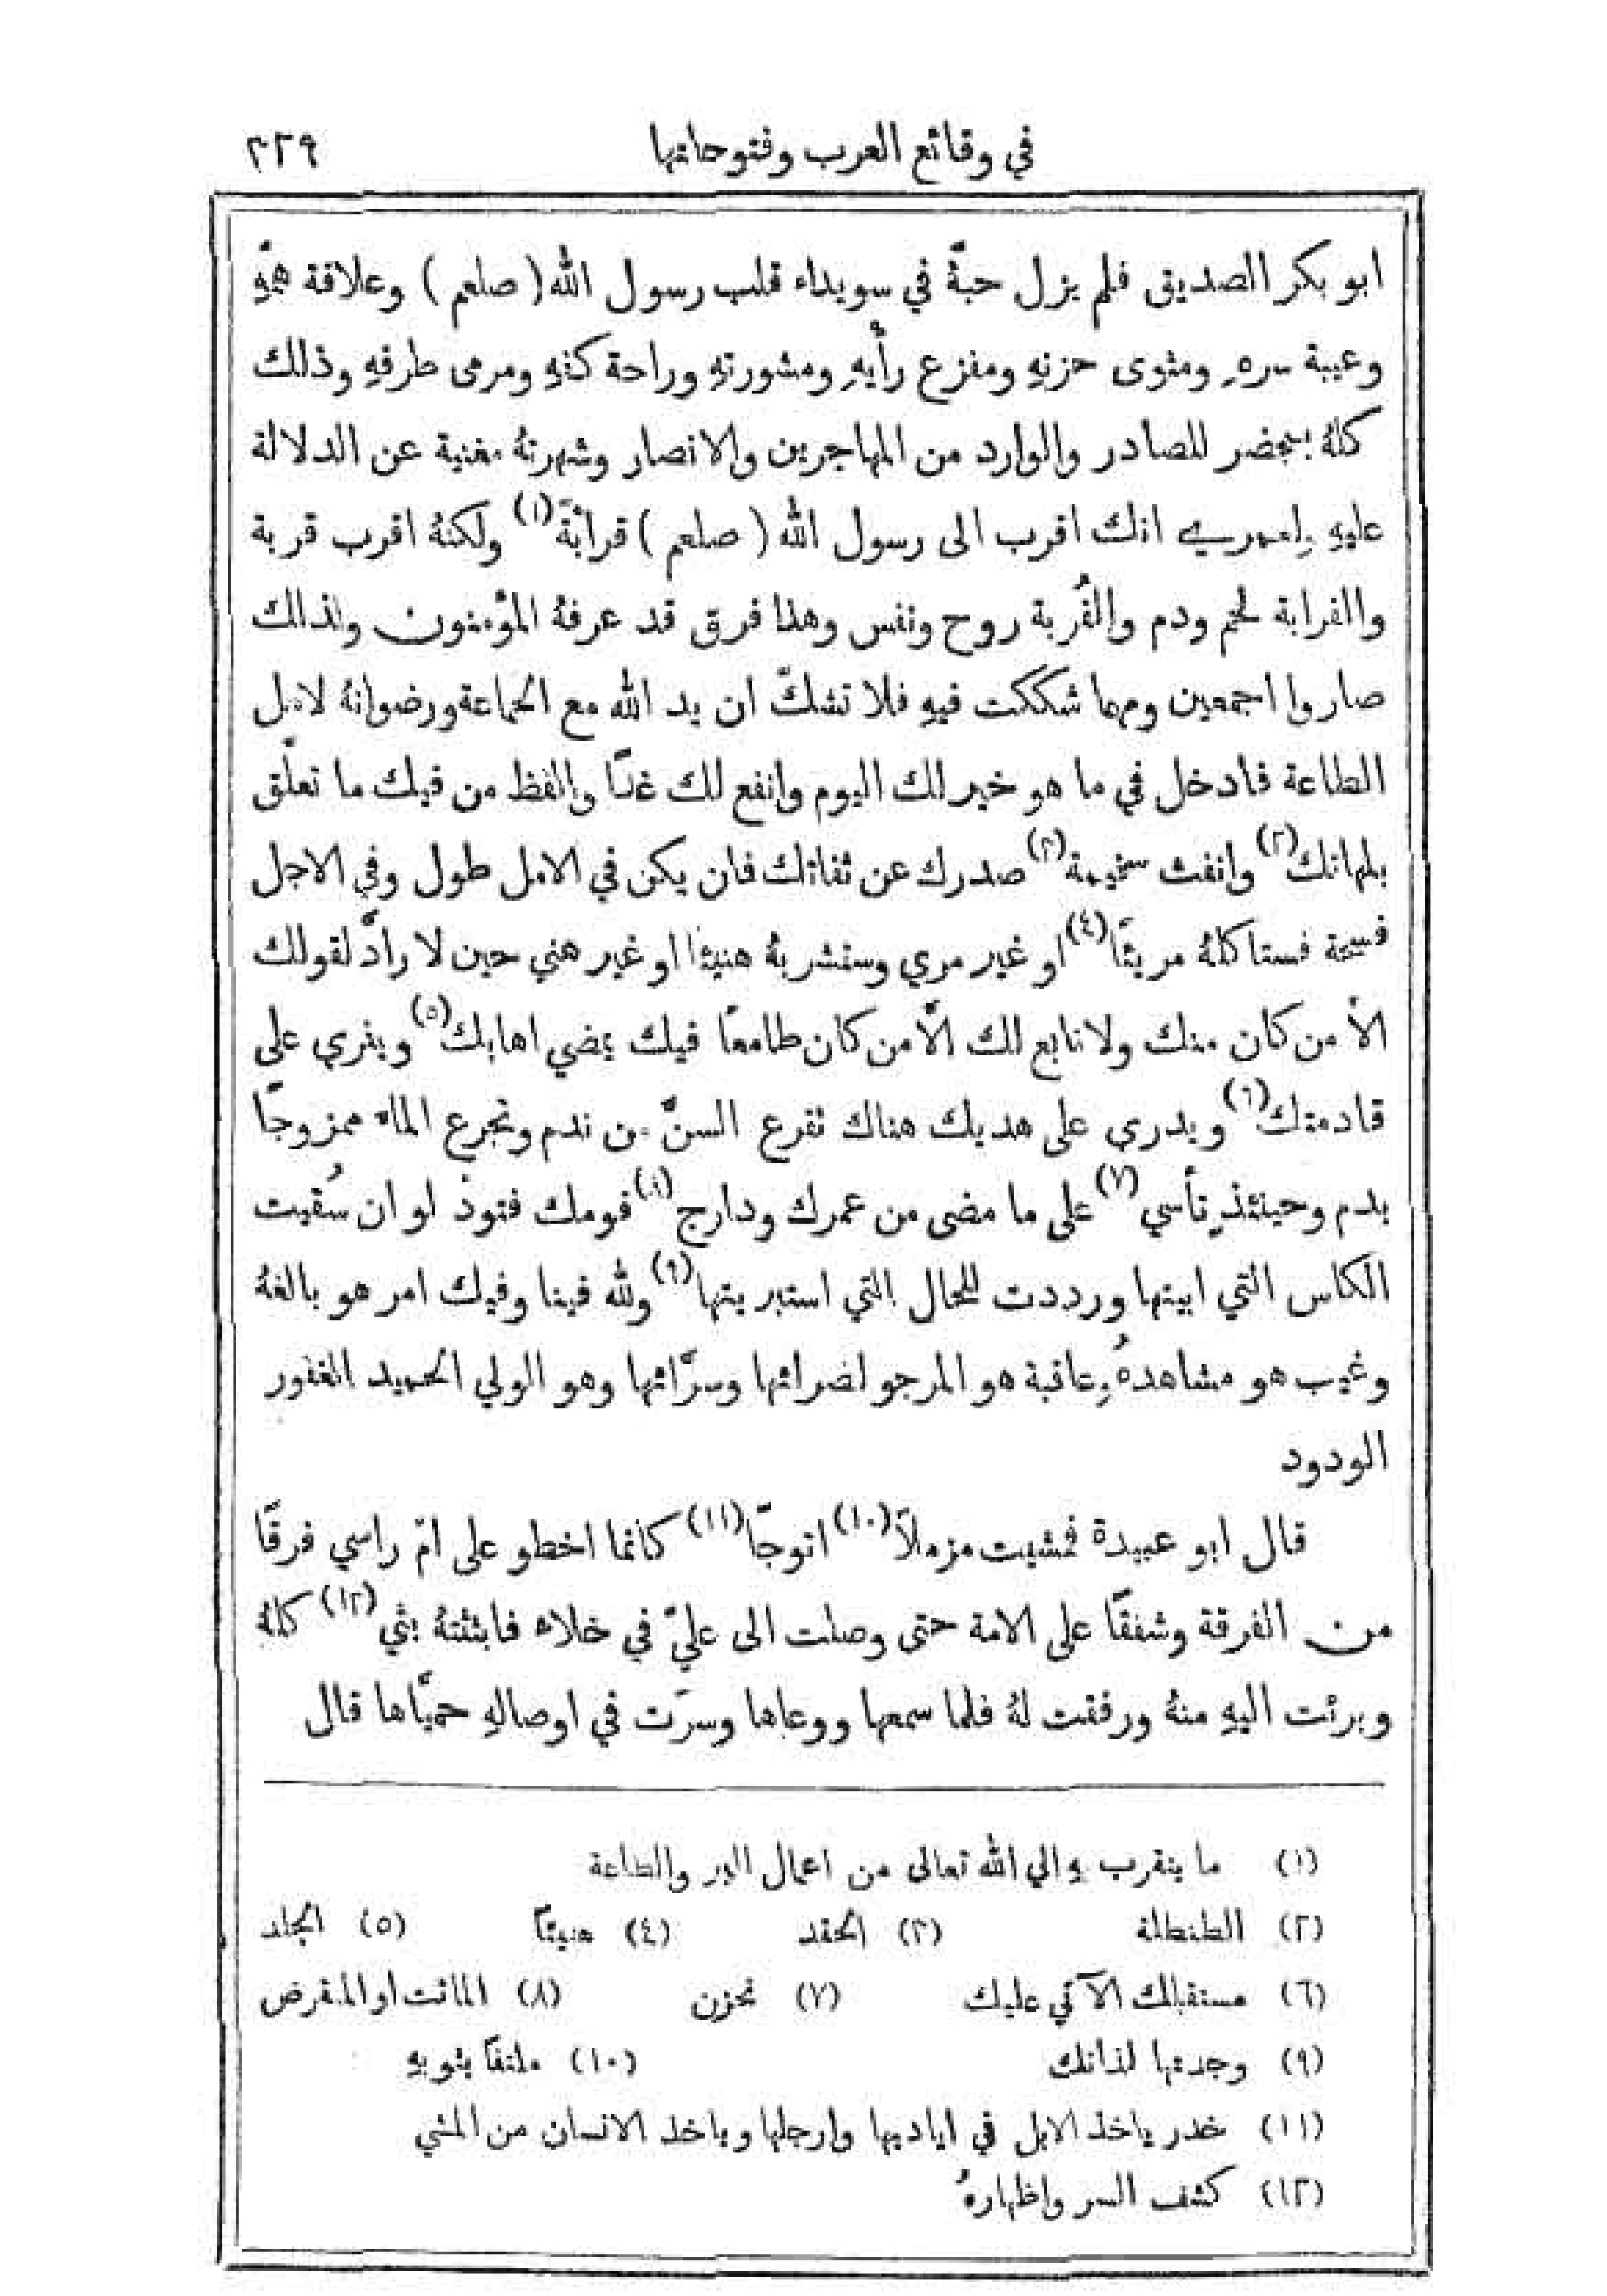 في وقائع العرب وفتوحاتها ٣٢٩
ابو بكر الصديق فلم يزل حبّة في سويداء قلب رسول الله (صلعم) وعلاقة همّهِ
وعيبة سرهِ ومثوى حزنهِ ومفزع رأيهِ ومشورتهِ وراحة كفهِ ومرمى طرفهِ وذلك
كلهُ بمحضر للصادر والوارد من المهاجرين والانصار وشهرتهُ مغنية عن الدلالة
عليهِ ولعمري انك اقرب الى رسول الله (صلعم) قرابةً (١) ولكنهُ اقرب قربة
والقرابة لحم ودم والقُربة روح ونفس وهذا فرق قد عرفهُ المؤمنون ولذلك
صاروا اجمعين ومهما شككت فيهِ فلا تشكّ ان يد الله مع الجماعة ورضوانهُ لاهل
الطاعة فادخل في ما هو خير لك اليوم وانفع لك غدًا والفظ من فيك ما تعلّق
بلهاتك (٢) وانفث سخيمة (٣) صدرك عن ثقاتك فان يكن في الامل طول وفي الاجل
فسحة فستاكلهُ مريئًا (٤) او غير مري وستشربهُ هنيئا او غير هني حين لا رادَّ لقولك
الاّ من كان منك ولا تابع لك الاّ من كان طامعًا فيك يمضي اهابك (٥) ويفري على
قادمتك (٦) ويدرى على هديك هناك تقرع السنّ من ندم وتجرع الماء ممزوجًا
بدم وحينئذٍ تأسي (٧) على ما مضى من عمرك ودارج (٨) قومك فتودّ لو ان سُقيت
الكاس التي ابيتها ورددت للحال التي استبريتها (٩) ولله فينا وفيك امر هو بالغهُ
وغيب هو مشاهدهُ وعاقبة هو المرجو لضرائها وسرّائها وهو الولي الحميد الغفور
الودود
قال ابو عبيدة فمشيت مزملاً (١٠) اتوجّا (١١) كانما اخطو على امّ راسي فرقًا
من الفرقة وشفقًا على الامة حتى وصلت الى عليّ في خلاء فابثثتهُ بثي (١٢) كلهُ
وبرئت اليهِ منهُ ورفقت لهُ فلما سمعها ووعاها وسرَت في اوصالهِ حميّاها قال
(١) ما يتقرب بهِ الى الله تعالى من اعمال البر والطاعة
(٢) الطنطلة (٣) الحقد (٤) هنيئًا (٥) الجلد
(٦) مستقبلك الآتي عليك (٧) تحزن (٨) المائت او المنقرض
(٩) وجدتها لذاتك (١٠) ملتفًا بثوبهِ
(١١) خدر ياخذ الابل في اياديها وارجلها وياخذ الانسان من المشي
(١٢) كشف السر واظهارهُ